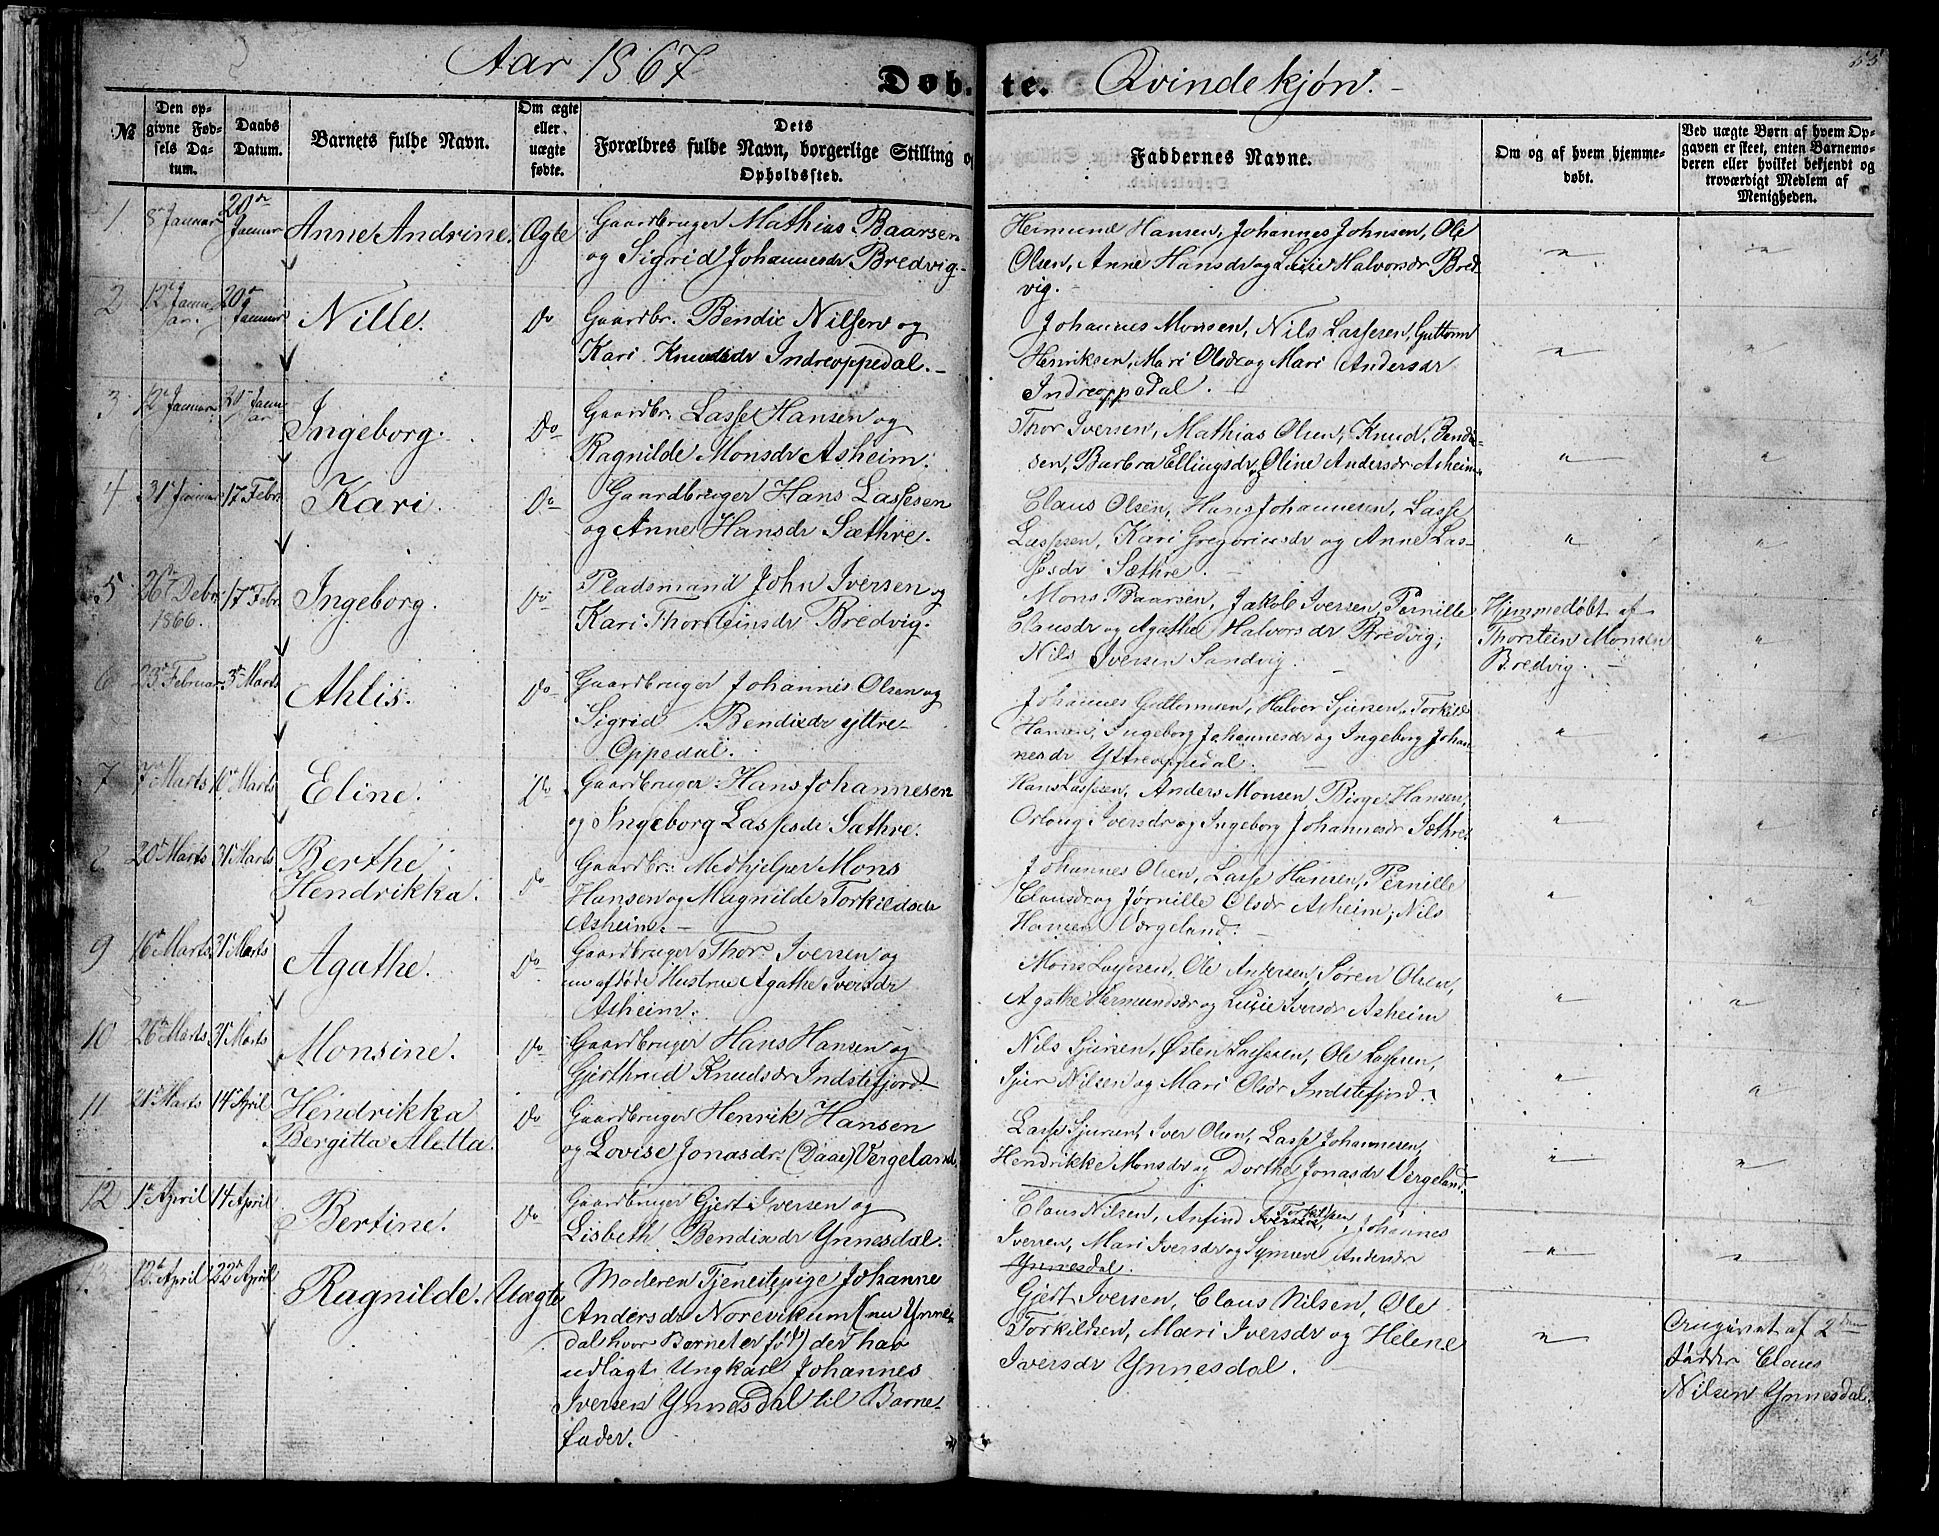 55
Aar 1867
Döb- te. Qvindekjøn.-
№
Den opgivne Fødsels Datum.
Daabs Datum.
Barnets fulde Navn.
Om ægte eller uægte fødte.
Dets Forældres fulde Navn, borgerlige Stilling og Opholdssted.
Faddernes Navne.
Om og af hvem hjemmedøbt.
Ved uægte Børn af hvem Opgaven er skeet, enten Barnemoderen eller hvilket bekjendt og troværdigt Medlem af Menigheden.
1 8de Januar 20de Januar Anne Andrine. Ægte
Gaardbruger Mathias Baarsen
og Sigrid Johannesdr Bredvig.-
Hermund Hansen, Johannes Johnsen, Ole
Olsen, Anne Hansdr og Lucie Halvorsdr Bred-
vig.-
2 12te Januar. 20de Januar Nille. Do
Gaardbr. Bendix Nilsen og
Kari Knudsdr Indreoppedal.-
Johannes Monsen, Nils Lassesen, Guttorm
Henriksen, Mari Olsdr og Mari Andersdr
Indreoppedal.
3 12te Januar 20de Januar Ingeborg. Do
Gaardbr. Lasse Hansen og
Ragnilde Monsdr Asheim.
Thor Iversen, Mathias Olsen, Knud Bendix-
sen, Barbra Ellingsdr og Oline Andersdr Asheim
4 31te Januar 17 Febr. Kari. Do
Gaardbruger Hans Lassesen
og Anne Hansdr Sæthre.
Claus Olsen, Hans Johannesen, Lasse
Lassesen, Kari Gregoriusdr og Anne Las-
sesdr Sæthre.
5 26de Debr 1866. 17de Febr. Ingeborg. Do
Pladsmand John Iversen og
Kari Thorsteinsdr Bredvig.
Mons Baarsen, Jakob Iversen, Pernille
Clausdr og Agathe Halvorsdr Bredvig;
Nils Iversen Sandvig.
Hjemmedøbt af
Thorstein Monsen
Bredvig.
6 23de Februar 3de Marts Ahlis. Do
Gaardbruger Johannes Olsen og
Sigrid Bendixdr yttre-
Oppedal.
Johannes Guttormsen, Halvor Sjursen, Torkild
Hansen, Ingeborg Johannesdr og Ingeborg Johan-
nesdr Yttreoppedal.
7 7de Marts 10de Marts Eline. Do
Gaardbruger Hans Johannesen
og Ingeborg Lassesdr Sæthre.
Hans Lassesen, Anders Monsen, Birge Hansen,
Orloug Iversdr og Ingeborg Johannesdr Sæthre.
8 20de Marts 31te Marts Berthe
Hendrikka. Do
Gaardbr. Medhjelper Mons
Hansen og Magnilde Torkildsdr
Asheim.-
Johannes Olsen, Lasse Hansen, Pernille
Clausdr og Jørnille Olsdr Asheim, Nils
Hansen Værgeland.-
9 16de Marts 31te Marts Agathe. Do
Gaardbruger Thor Iversen og
nu afdøde Hustrue Agathe Iversdr
Asheim.
Mons Lassesen, Ole Andersen, Søren Olsen,
Agathe Hermundsdr og Lucie Iversdr Asheim
10 26de Marts 31te Marts Monsine. Do
Gaardbruger Hans Hansen og
Gjerthrud Knudsdr Indstefjord
Nils Sjursen, Østen Lassesen, Ole Lassesen,
Sjur Nilsen og Mari Olsdr Indstefjord.
11 21de Marts 14de April Hendrikka
Bergitta Aletta. Do
Gaardbruger Henrik Hansen
og Lovise Jonasdr. (Daae) Vergeland
Lasse Sjursen, Iver Olsen, Lasse Johannesen,
Hendrikke Monsdr og Dorthe Jonasdr Vergeland.
12 1te April 14 April Bertine. Do
Gaardbruger Gjert Iversen og
Lisbeth Bendixdr Ynnesdal.
Claus Nilsen, Anfind Torkilsen, Johannes
Iversen, Mari Iversdr og Synneve Andersdr
Ynnesdal.
13 12te April 22de April Ragnilde. Uægte
Moderen Tjenestepige Johanne
Andersdr Norevikum (nu Ynnes-
dal hvor Barnet er født) der har
udlagt Ungkarl Johannes
Iversen Ynnesdal til Barne-
fader.
Gjert Iversen, Claus Nilsen, Ole
Torkildsen, Mari Iversdr og Helene
Iversdr Ynnesdal.
af 2den
Fadder Claus
Nilsen Ynnesdal.